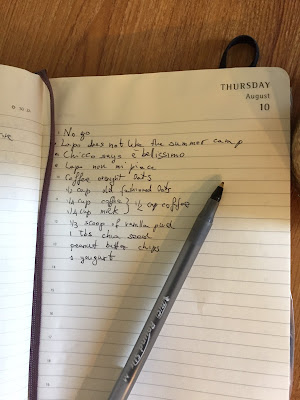 THURSDAY
August
10
No go
Lapo does not like the summer camp
Chicco says è bellissimo
Lapo non mi piace
Coffee oats
1/2 cup old fashioned oats
1/4 cup coffee } 1/2 cup coffee
1/4 cup milk
1/3 scoop of vanilla
1 tbs chia seed
peanut butter chips
yougurt